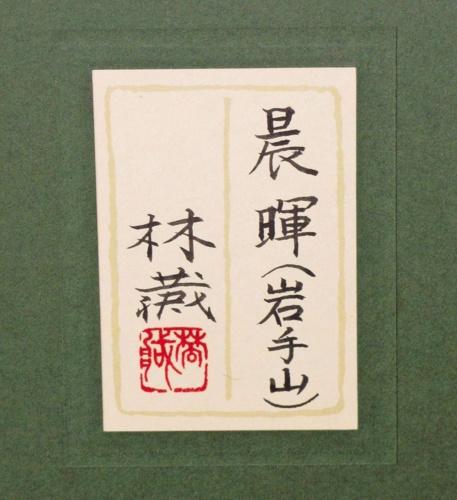 晨暉(岩手山)
林